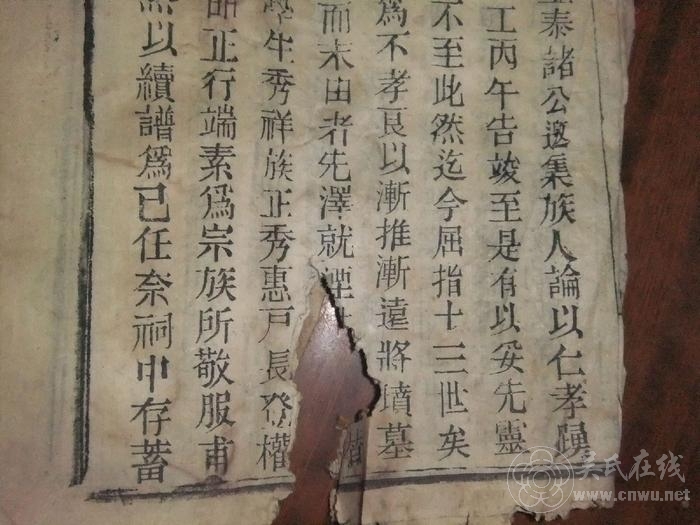 泰諸公邀集族人論以仁孝
工丙午告竣至是有以妥先靈
不至此然迄今屈指十三世矣
為不孝良以漸推漸遠將墳墓
而未由者先澤就湮
生秀祥族正秀惠戶長登權
正行端素為宗族所敬服甫
以續譜為己任奈祠中存蓄
吴氏在线
www.cnwu.net